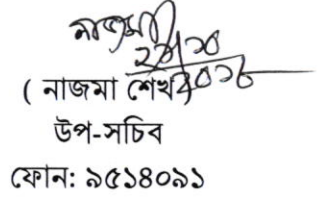 নাজমা
( নাজমা শেখ)
উপ-সচিব
ফোন: ৯৫১৪০৯১